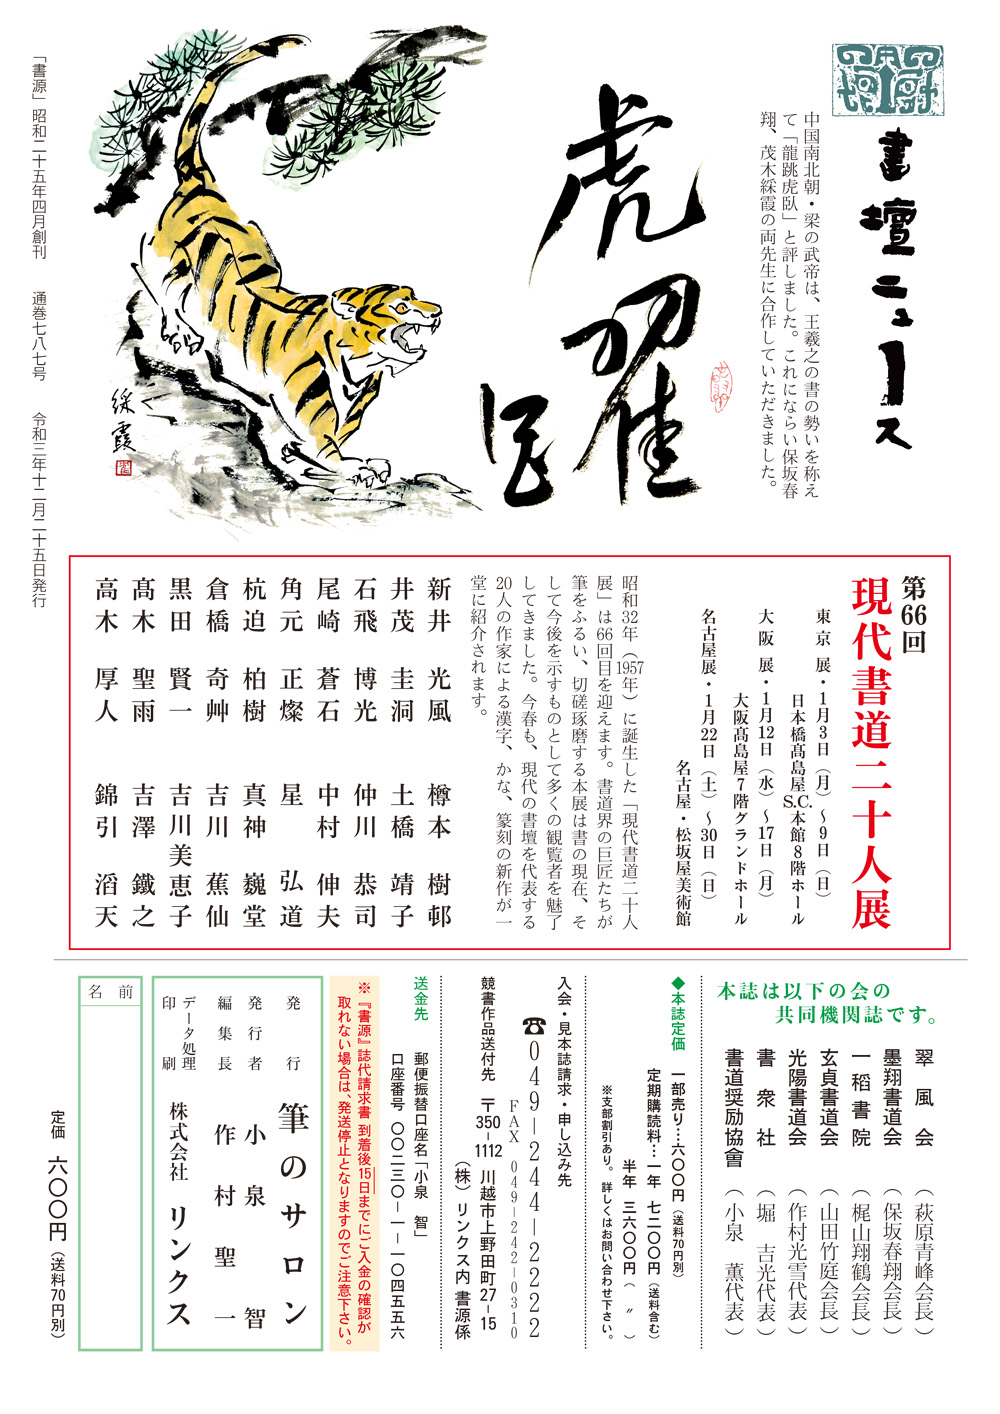 書壇ニュース
中国南北朝・梁の武帝は、王羲之の書の勢いを称え
て「龍跳虎臥」と評しました。これにならい保坂春
翔、茂木綵霞の両先生に合作していただきました。
虎躍
綵霞
「書源」昭和二十五年四月創刊　通巻七八七号　令和三年十二月二十五日発行
第66回
現代書道二十人展
東京展・1月3日（月）〜9日（日）
日本橋髙島屋S.C.本館8階ホール
大阪展・1月12日（水）〜17日（月）
大阪髙島屋7階グランドホール
名古屋展・1月22日（土）〜30日（日）
名古屋・松坂屋美術館
昭和32年（1957年）に誕生した「現代書道二十人
展」は66回目を迎えます。書道界の巨匠たちが
筆をふるい、切磋琢磨する本展は書の現在、そ
して今後を示すものとして多くの観覧者を魅了
してきました。今春も、現代の書壇を代表する
20人の作家による漢字、かな、篆刻の新作が一
堂に紹介されます。
新井　光風　樽本　樹邨
井茂　圭洞　土橋　靖子
石飛　博光　仲川　恭司
尾崎　蒼石　中村　伸夫
角元　正燦　星　弘道
杭迫　柏樹　真神　巍堂
倉橋　奇艸　吉川　蕉仙
黒田　賢一　吉川美恵子
髙木　聖雨　吉澤　鐵之
高木　厚人　錦引　滔天
本誌は以下の会の
共同機関誌です。
翠風会（萩原青峰会長）
墨翔書道会（保坂春翔会長）
一稲書院（梶山翔鶴会長）
玄貞書道会（山田竹庭会長）
光陽書道会（作村光雪代表）
書衆社（堀　吉光代表）
書道奨励協會（小泉　薫代表）
◆本誌定価　一部売り…六〇〇円（送料70円別）
定期購読料…一年　七二〇〇円（送料含む）
半年　三六〇〇円（　〃　）
※支部割引あり。詳しくはお問い合わせ下さい。
入会・見本誌請求・申し込み先
☎049－244－2222
FAX　049－242－0310
競書作品送付先　〒350－1112　川越市上野田町27－15
（株）リンクス内　書源係
送金先　郵便振替口座名「小泉　智」
口座番号　〇〇二三〇－一－一〇四五五六
※『書源』誌代請求書　到着後15日までにご入金の確認が
取れない場合は、発送停止となりますのでご注意下さい。
発行　筆のサロン
発行者　小泉　智
編集長　作村　聖一
データ処理
印刷　株式会社　リンクス
名前
定価　六〇〇円（送料70円別）